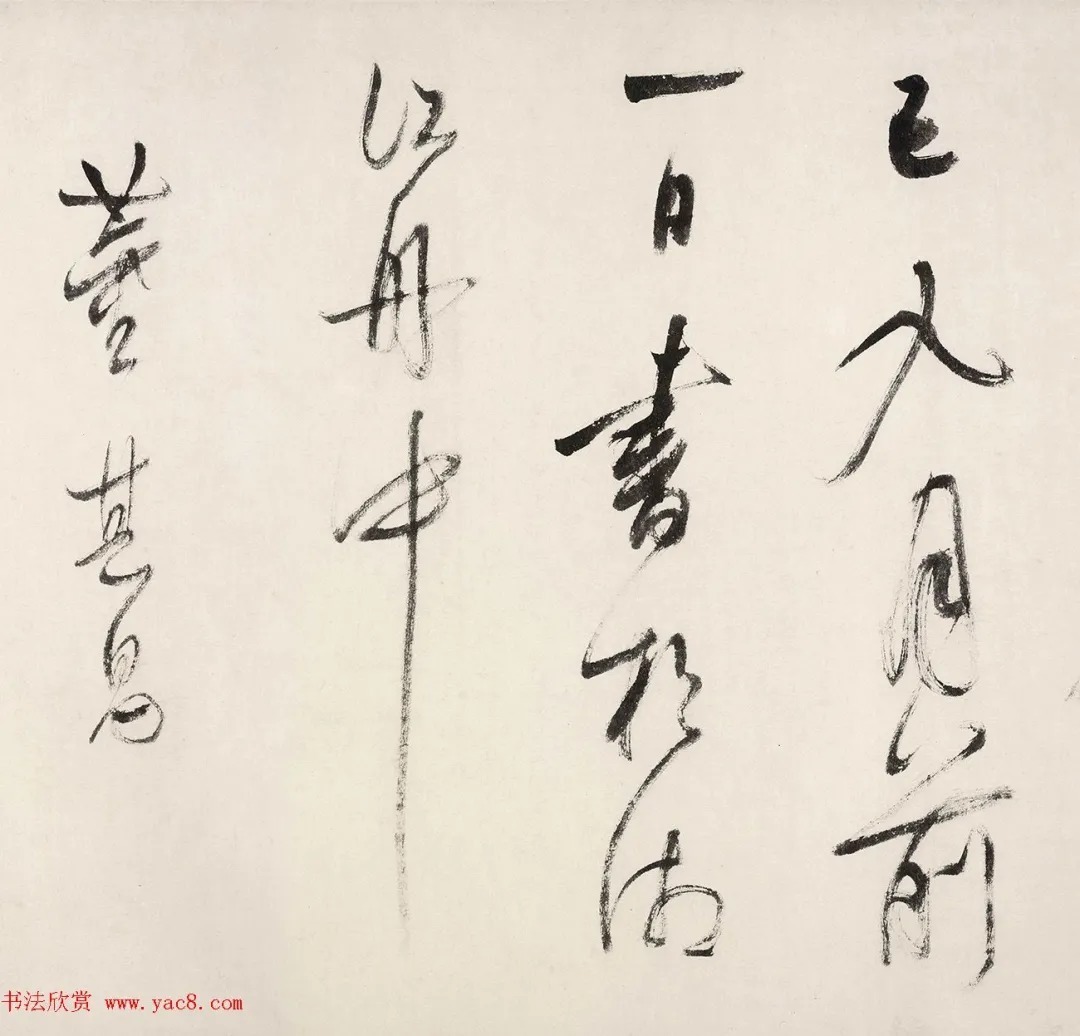 巳九月前
一日書於湘
江舟中
董其昌
书法欣赏 www.yac8.com